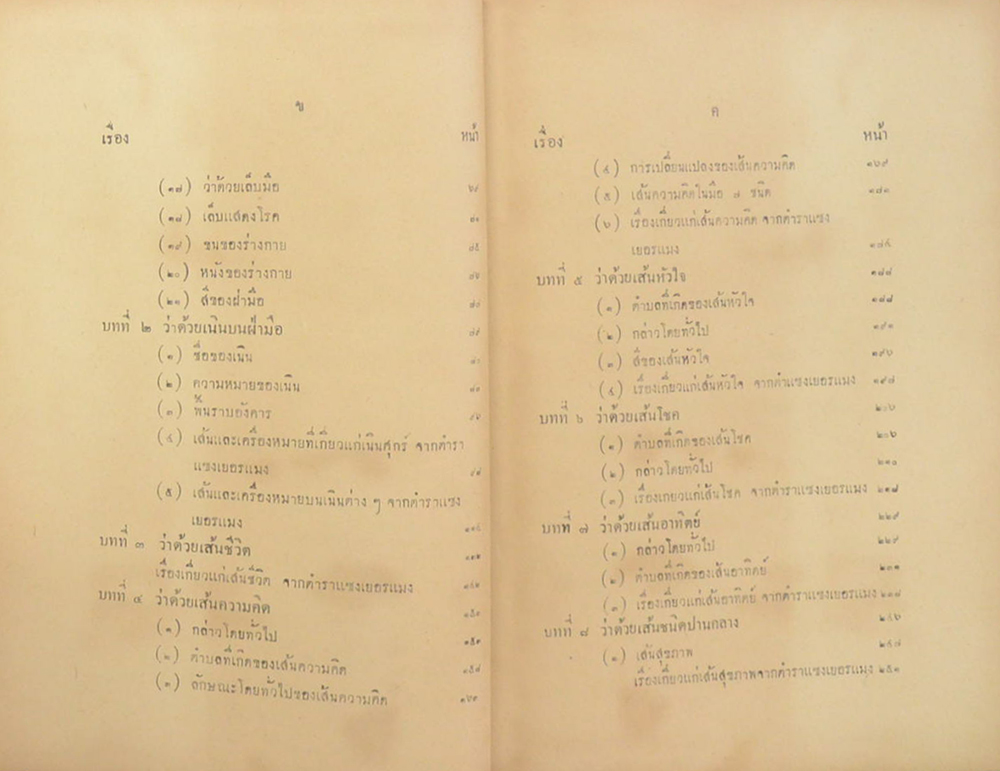 ข
เรื่อง หน้า
(๑๗) ว่าด้วยเล็บมือ ๖๙
(๑๘) เล็บแสดงโรค
(๑๙) ขนของร่างกาย ๗๕
(๒๐) หนังของร่างกาย ๗๖
(๒๑) สีของฝ่ามือ
บทที่ ๒ ว่าด้วยเนินบนฝ่ามือ
(๑) ชื่อของเนิน
(๒) ความหมายของเนิน
(๓) พื้นราบอังคาร
(๔) เส้นและเครื่องหมายที่เกี่ยวแก่เนินศุกร์ จากตำรา
แซงเยอรแมง
(๕) เส้นและเครื่องหมายบนเนินต่าง ๆ จากตำราแซง
เยอรแมง
บทที่ ๓ ว่าด้วยเส้นชีวิต
เรื่องเกี่ยวแก่เส้นชีวิต จากตำราแซงเยอรแมง
บทที่ ๔ ว่าด้วยเส้นความคิด
(๑) กล่าวโดยทั่วไป
(๒) ตำบลที่เกิดของเส้นความคิด
(๓) ลักษณะโดยทั่วไปของเส้นความคิด
ค
เรื่อง หน้า
(๔) การเปลี่ยนแปลงของเส้นความคิด ๑๖๙
(๕) เส้นความคิดในมือ ๗ ชนิด ๑๘๑
(๖) เรื่องเกี่ยวแก่เส้นความคิด จากตำราแซง
เยอรแมง
บทที่ ๕ ว่าด้วยเส้นหัวใจ ๑๘๘
(๑) ตำบลที่เกิดของเส้นหัวใจ ๑๘๘
(๒) กล่าวโดยทั่วไป ๑๙๑
(๓) สีของเส้นหัวใจ ๑๙๖
(๔) เรื่องเกี่ยวแก่เส้นหัวใจ จากตำแซงเยอรแมง ๑๙๗
บทที่ ๖ ว่าด้วยเส้นโชค ๒๐๖
(๑) ตำบลที่เกิดของเส้นโชค ๒๐๖
(๒) กล่าวโดยทั่วไป ๒๑๐
(๓) เรื่องเกี่ยวแก่เส้นโชค จากตำราแซงเยอรแมง ๒๑๘
บทที่ ๗ ว่าด้วยเส้นอาทิตย์ ๒๒๙
(๑) กล่าวโดยทั่วไป ๒๒๙
(๒) ตำบลที่เกิดของเส้นอาทิตย์ ๒๓๑
(๓) เรื่องเกี่ยวแก่เส้นอาทิตย์ จากตำราแซงเยอรแมง
บทที่ ๘ ว่าด้วยเส้นชนิดปานกลาง ๒๔๖
(๑) เส้นสุขภาพ ๒๔๗
เรื่องเกี่ยวแก่เส้นสุขภาพจากตำราแซงเยอรแมง ๒๕๑